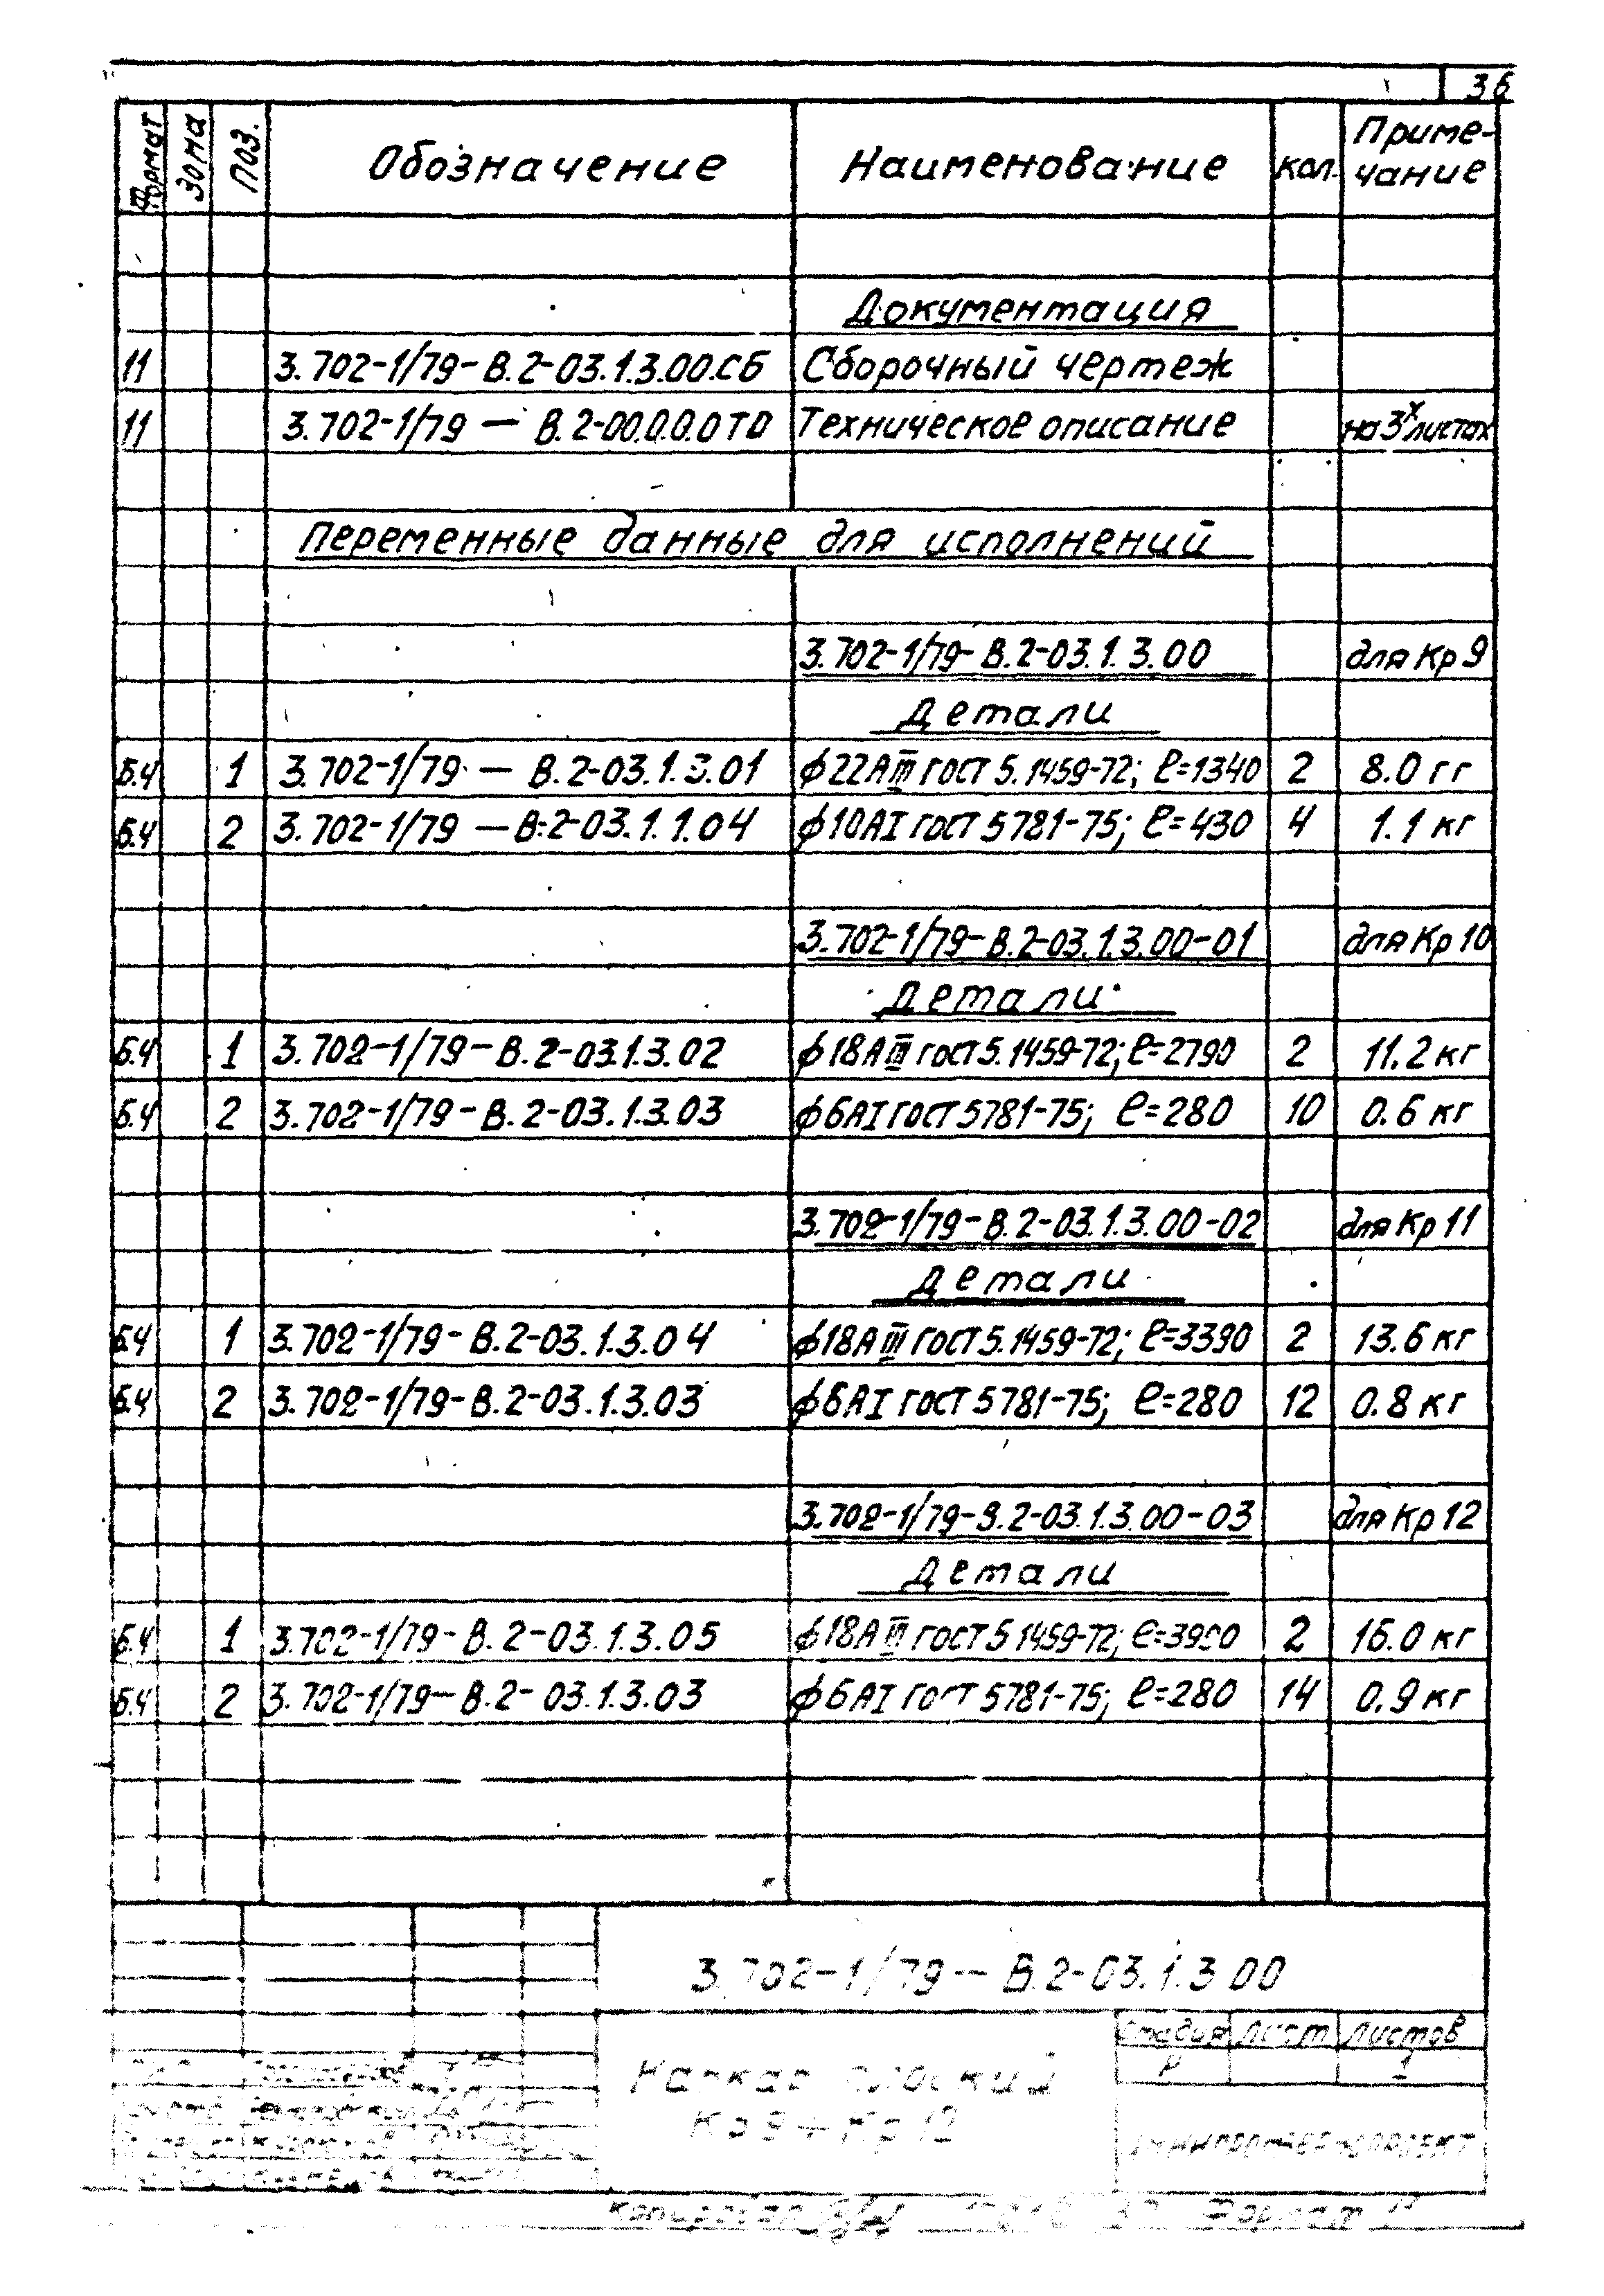 36
Формат Зона Поз. Обозначение Наименование Кол. Приме-
чание
Документация
11 3.702-1/79-В.2-03.1.3.00.СБ Сборочный чертеж
11 3.702-1/79 — В.2-00.0.0.0ТО Техническое описание на 3х листах
Переменные данные для исполнений
3.702-1/79-В.2-03.1.3.00 для Кр 9
Детали
Б.Ч 1 3.702-1/79 — В.2-03.1.3.01 ϕ22АIII ГОСТ 5.1459-72; ℓ=1340 2 8.0 гг
Б.Ч 2 3.702-1/79 — В.2-03.1.1.04 ϕ10АI ГОСТ 5781-75; ℓ=430 4 1.1 кг
3.702-1/79-В.2-03.1.3.00-01 для Кр 10
Детали
Б.Ч 1 3.702-1/79-В.2-03.1.3.02 ϕ18АIII ГОСТ 5.1459-72; ℓ=2790 2 11.2 кг
Б.Ч 2 3.702-1/79-В.2-03.1.3.03 ϕ6АI ГОСТ 5781-75; ℓ=280 10 0.6 кг
3.702-1/79-В.2-03.1.3.00-02 для Кр 11
Детали
Б.Ч 1 3.702-1/79-В.2-03.1.3.04 ϕ18АIII ГОСТ 5.1459-72; ℓ=3390 2 13.6 кг
Б.Ч 2 3.702-1/79-В.2-03.1.3.03 ϕ6АI ГОСТ 5781-75; ℓ=280 12 0.8 кг
3.702-1/79-В.2-03.1.3.00-03 для Кр 12
Детали
Б.Ч 1 3.702-1/79-В.2-03.1.3.05 ϕ18АIII ГОСТ 5 1459-72; 2 16.0 кг
Б.Ч 2 3.702-1/79-В.2-03.1.3.03 ϕ6АI ГОСТ 5781-75; ℓ=280 14 0.9 кг
3.702-1/79-В.2-03.1.3 00
Стадия Лист Листов
Р 1
Каркас плоский
Кр 9 ÷ Кр 12
Копировал Формат 11